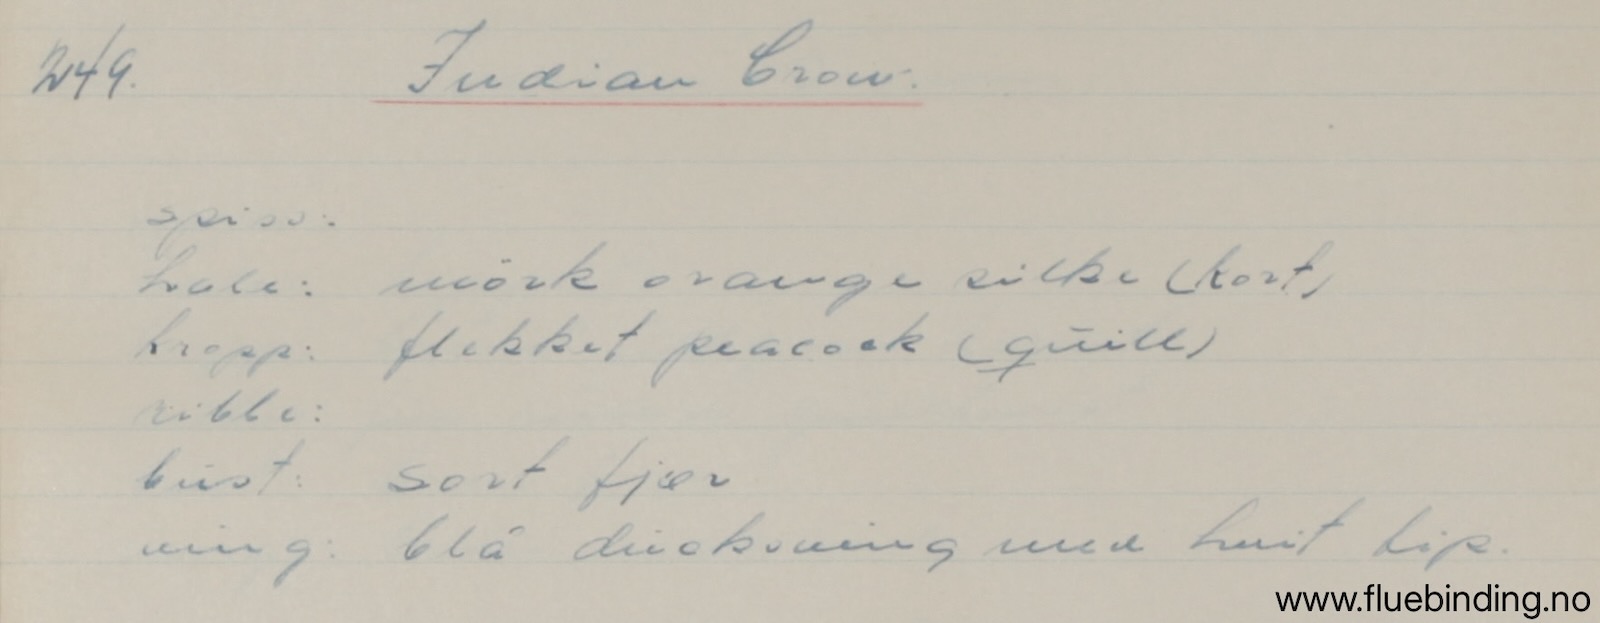 249. Indian Crow.
spiss:
hale: mörk orange silke (kort)
kropp: flekket peacock (quill)
ribbe:
bust: sort fjær
ving: blå duckwing med hvit tip.
www.fluebinding.no